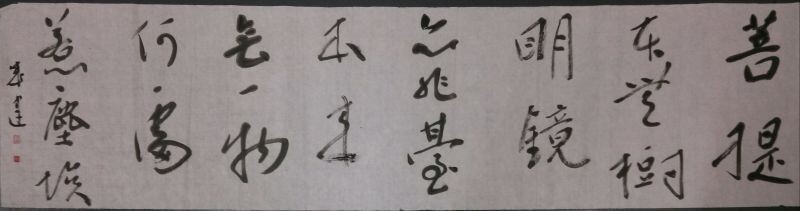 菩提
本無樹
明鏡
亦非臺
本來
無一物
何處
惹塵埃